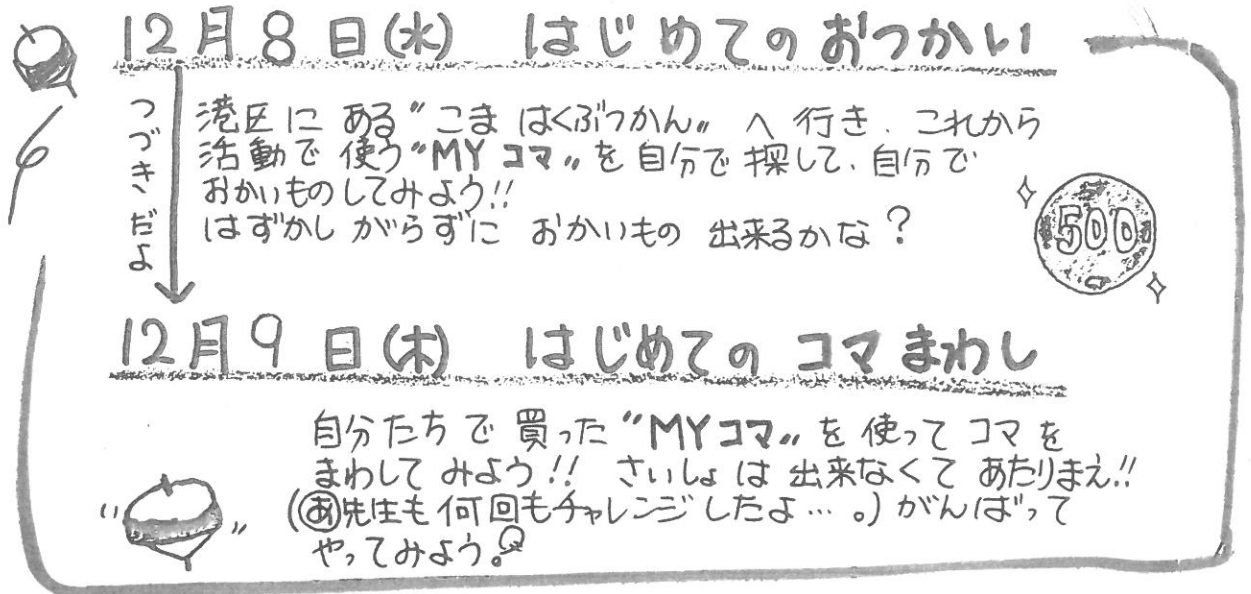 12月8日(水) はじめてのおつかい
つづきだよ
港区に ある〝こま はくぶつかん〟へ 行き、これから
活動で 使う〝MY コマ〟を 自分で 探して、自分で
おかいものしてみよう!!
はずかし がらずに おかいもの 出来るかな?
500
12月9日(木) はじめての コマまわし
自分たちで 買った〝MYコマ〟を 使って コマを
まわして みよう!! さいしょは 出来なくて あたりまえ!!
(あ先生も 何回もチャレンジしたよ…。)がんばって
やってみよう。